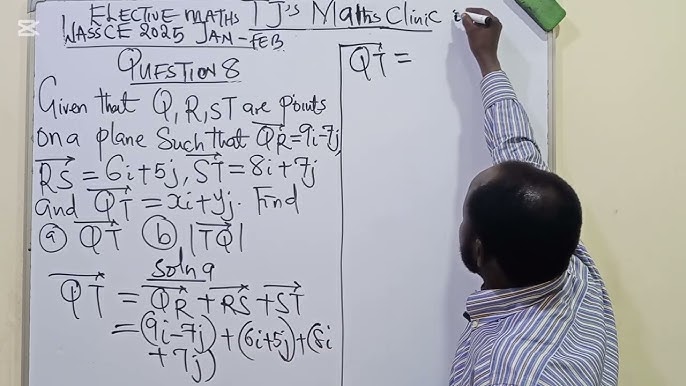 ELECTIVE MATHS TJ's Maths Clinic
WASSCE 2025 JAN-FEB
QUESTION 8
Given that Q, R, S T are points
on a plane such that QR = 9i-7j,
RS = 6i+5j, ST = 8i+7j
and QT = xi+yj. Find
(a) QT (b) |TQ|
soln 9
QT = QR + RS + ST
= (9i-7j) + (6i+5j) + (8i
+7j)
QT =